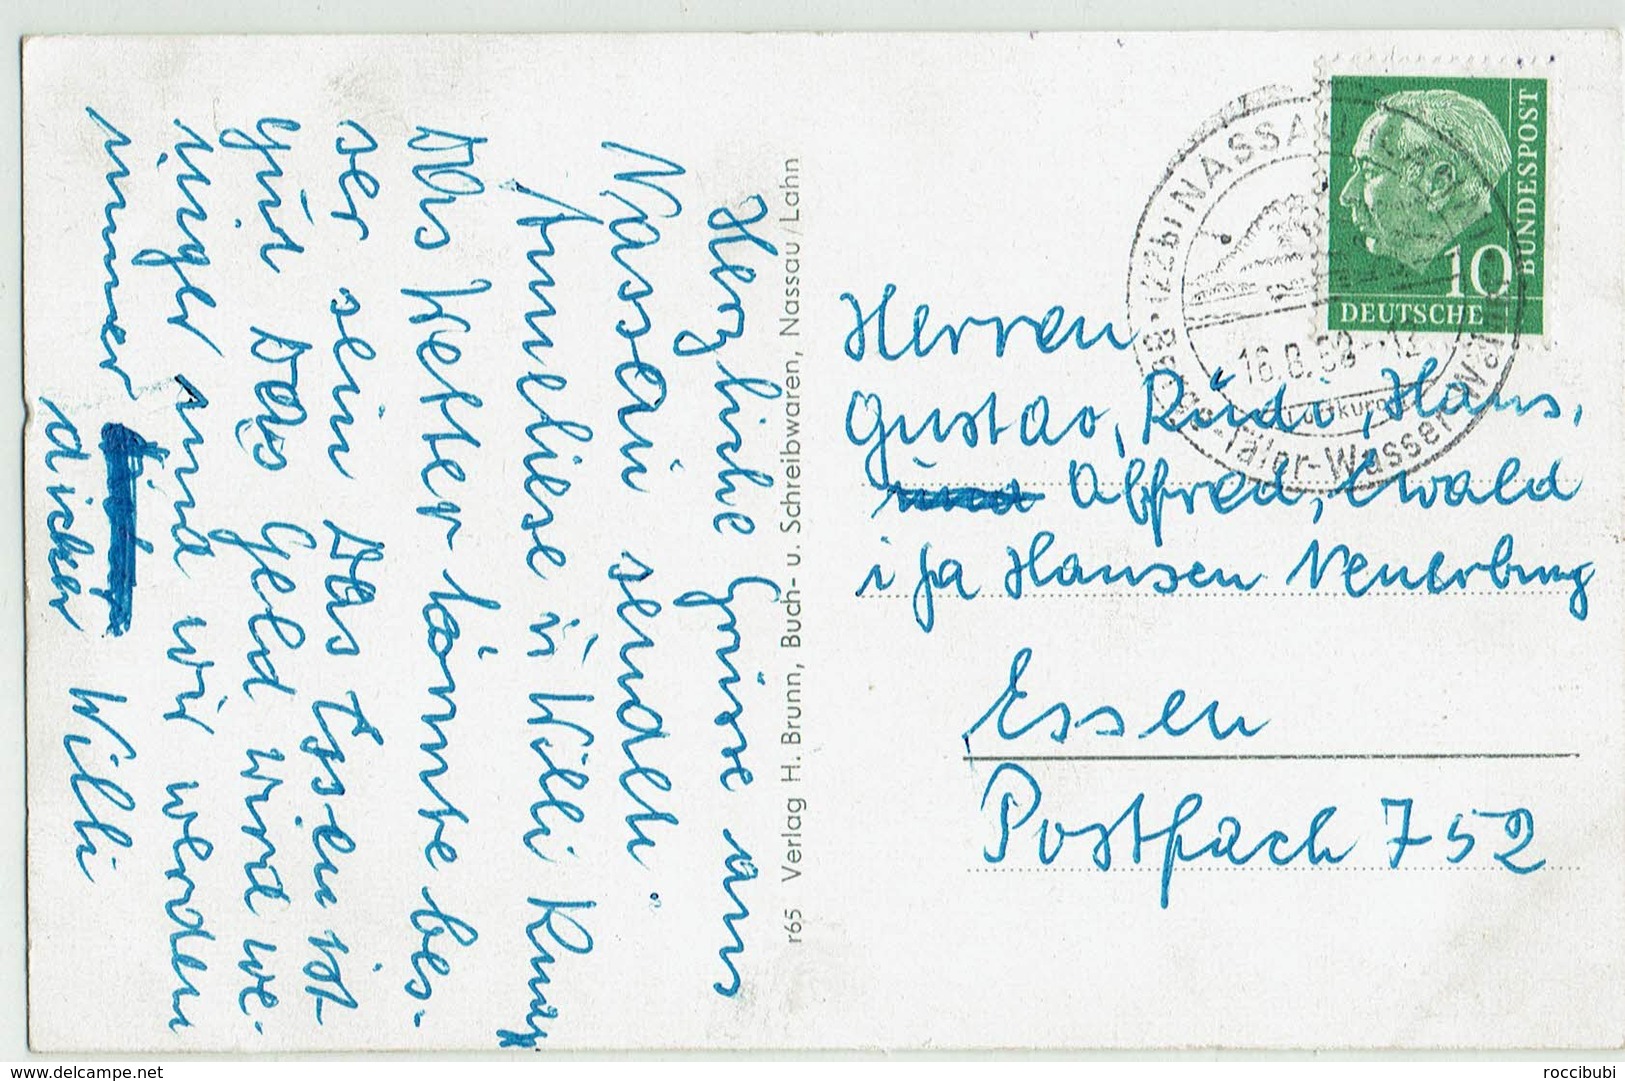 Herzliche Grüsse aus
Nassau senden
Anneliese ü Willi Knapp
Das Wetter könnte bes-
ser sein Das Essen ist
güd Das Geld wird we-
niger und wir werden
immer
dicker Willi
r65 Verlag H. Brunn, Buch- u. Schreibwaren, Nassau/Lahn
NASSAU LAHN
DEUTSCHE
BUNDESPOST
10
Herren
Gustav, Rüdi, Hans,
Alffred, Ewald
i Fa Hansen Neuerburg
Essen
Postfach 752
delcampe.net
roccibubi